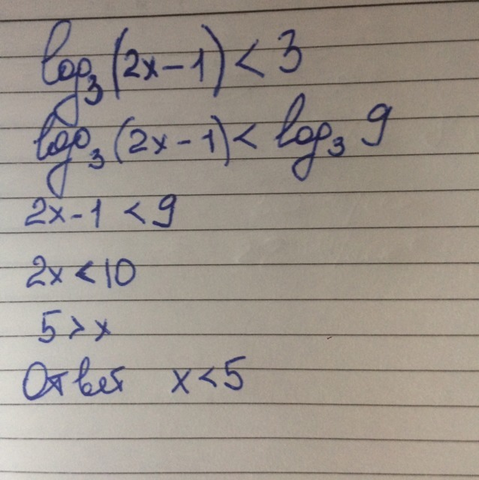 log₃(2x-1)<3
log₃(2x-1)<log₃ 9
2x-1<9
2x<10
5>x
Ответ x<5